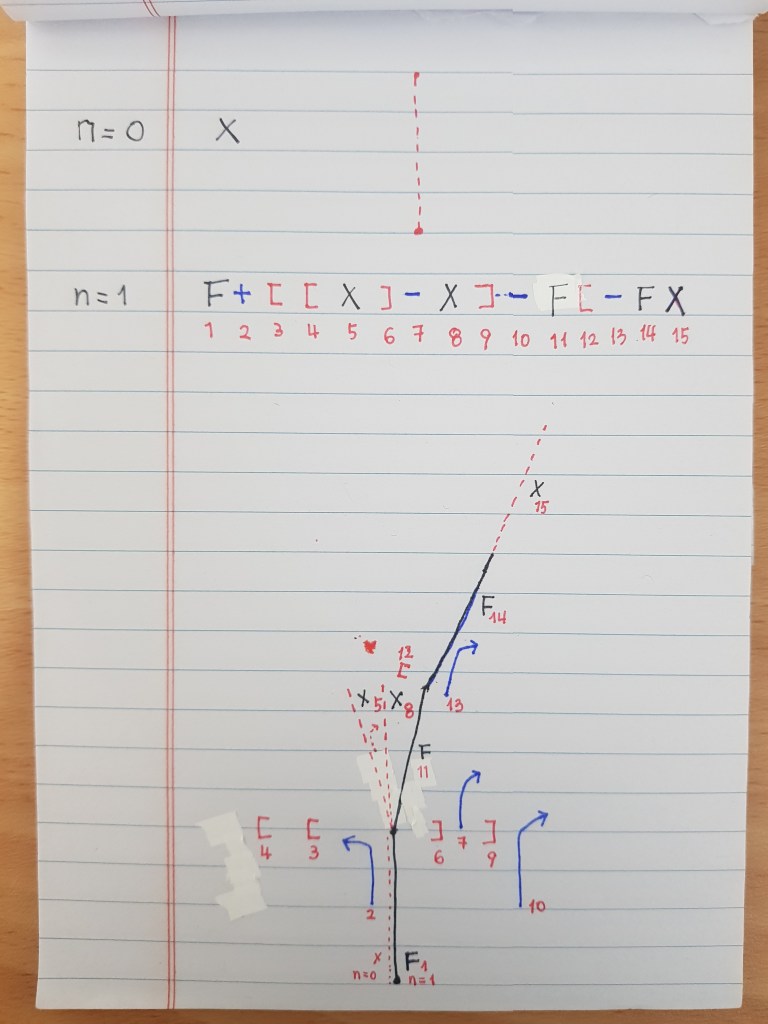 n=0 X
n=1 F+[[X]-X]--F[-FX
1 2 3 4 5 6 7 8 9 10 11 12 13 14 15
X
15
F14
12
[
X5 X8
13
F
11
[ [ ] 7 ]
4 3 6 9
2 10
X F1
n=0 n=1